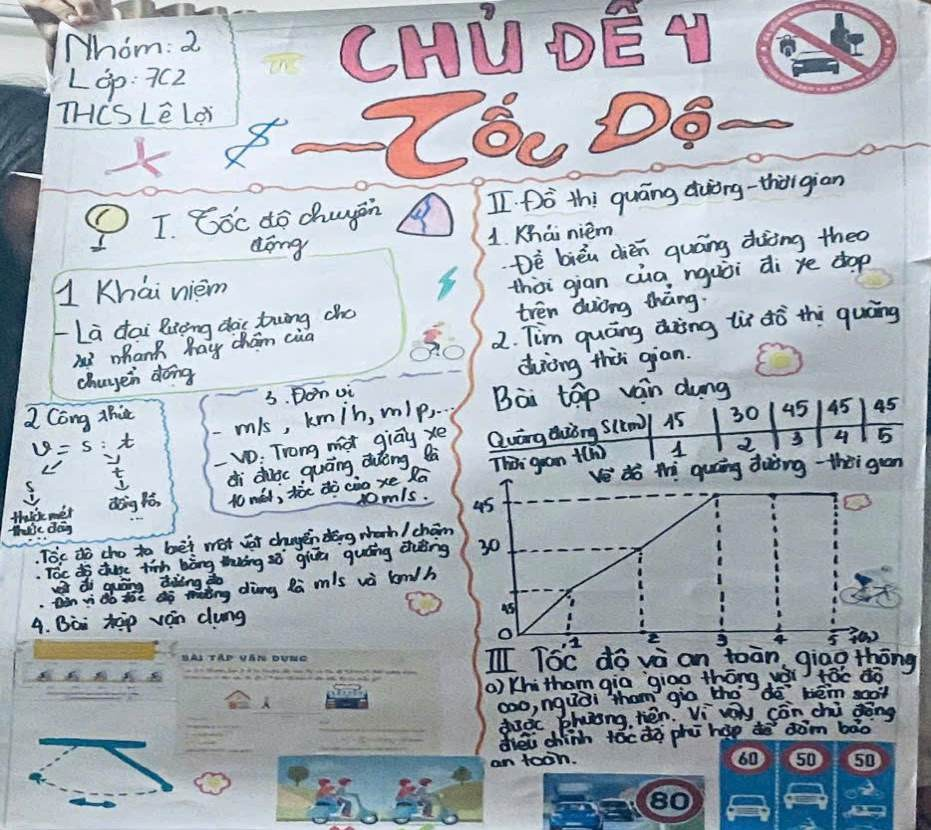 Nhóm: 2
Lớp: 7C2
THCS Lê Lợi
CHỦ ĐỀ 4
Tốc Độ
I. Tốc độ chuyển
động
1 Khái niệm
- Là đại lượng đặc trưng cho
sự nhanh hay chậm của
chuyển động
2 Công thức
v = s : t
s
t
thước mét
thước dây
đồng hồ,
...
3. Đơn vị
- m/s, km/h, m/p,...
- VD: Trong một giây xe
đi được quãng đường là
10 mét, tốc độ của xe là
10m/s.
. Tốc độ cho ta biết một vật chuyển động nhanh/chậm
. Tốc độ được tính bằng thương số giữa quãng đường
vật đi quãng đường đó
. Đơn vị đo tốc độ thường dùng là m/s và km/h
4. Bài tập vận dụng
BÀI TẬP VẬN DỤNG
II. Đồ thị quãng đường - thời gian
1. Khái niệm
- Để biểu diễn quãng đường theo
thời gian của người đi xe đạp
trên đường thẳng.
2. Tìm quãng đường từ đồ thị quãng
đường thời gian.
Bài tập vận dụng
Quãng đường s(km) 15 30 45 45 45
Thời gian t(h) 1 2 3 4 5
Vẽ đồ thị quãng đường - thời gian
45
30
0 1 2 3 4 5 t(h)
III Tốc độ và an toàn giao thông
a) Khi tham gia giao thông với tốc độ
cao, người tham gia khó để kiểm soát
được phương tiện. Vì vậy cần chủ động
điều chỉnh tốc độ phù hợp để đảm bảo
an toàn.
80
60 50 50